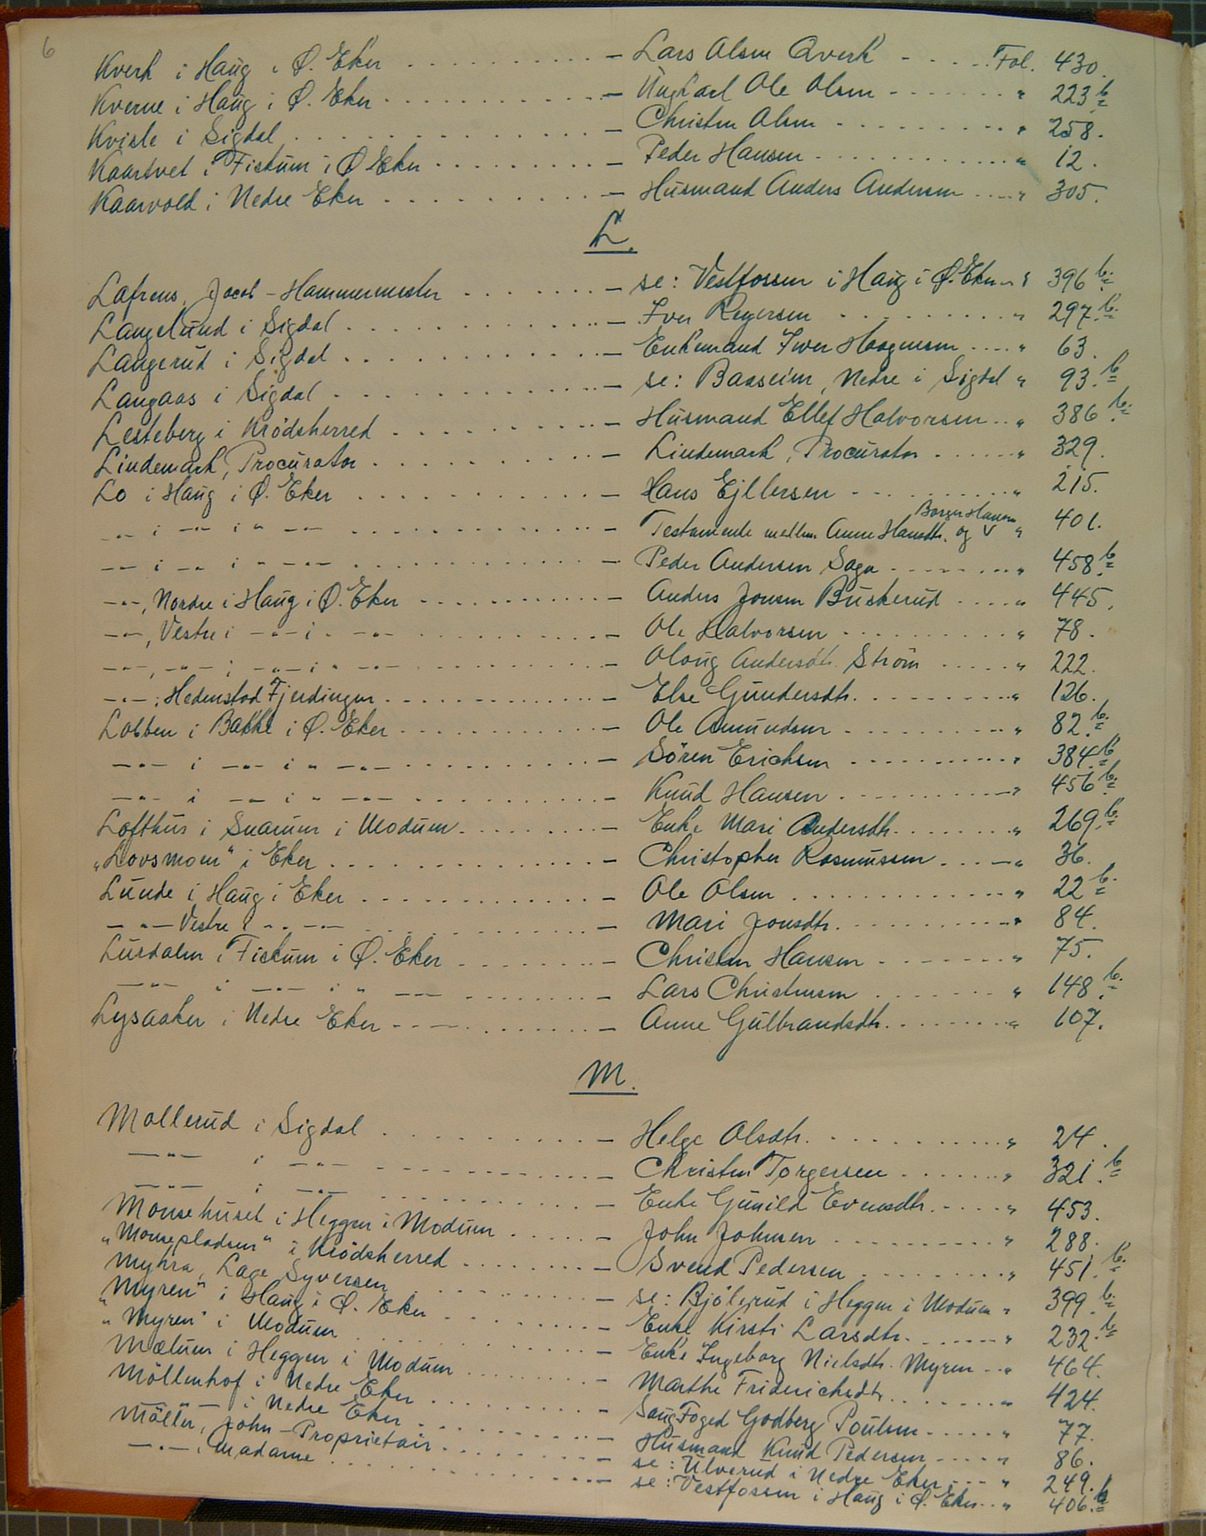 6
Kverk i Haug i Ø. Eker - Lars Olsen Qverk Fol. 430.
Kverne i Haug i Ø. Eker - Ungkarl Ole Olsen " 223 b
Kvisle i Sigdal - Christen Olsen " 258.
Kaartvet i Fiskum i Ø Eker - Peder Hansen " 12.
Kaarvold i Nedre Eker - Husmand Anders Andersen " 305.
L.
Lafrens, Jacob - Hammermester - se: Vestfossen i Haug i Ø. Eker " 396 b.
Langelund i Sigdal - Iver Reyersen " 297. b.
Langerud i Sigdal - Enkemand Iver Haagensen " 63.
Langaas i Sigdal - se: Baaseim, Nedre i Sigdal " 93. b
Lesteberg i Krödsherred - Husmand Ellef Halvorsen " 386 b.
Lindemark, Procurator - Lindemark, Procurator " 329.
Lo i Haug i Ø. Eker - Hans Ejllersen " 215.
-"- i -"- i " -"- - Testamente mellem Anne Hansdtr. og Borger Hansen " 401.
-"- i -"- i " -"- - Peder Andersen Saga " 458. b
-"-, Nordre i Haug i Ø. Eker - Anders Jonsen Buskerud " 445.
-"-, Vestre i -"- i -"- - Ole Halvorsen " 78.
-"-, -"- i -"- i " -"- - Oloug Andersdtr. Ström " 222.
-"-, Hedenstad Fjerdingen - Else Gundersdtr. " 126.
Lobben i Bakke i Ø. Eker - Ole Amundsen " 82. b
-"- i -"- i " -"- - Sören Erichsen " 384. b
-"- i -"- i " -"- - Knud Hansen " 456 b.
Lofthus i Snarum i Modum - Enke Mari Andersdtr. " 269. b
"Lovsmoen" i Eker - Christopher Rasmussen " 36.
Lunde i Haug i Eker - Ole Olsen " 22 b
-"- Vestre i -"- -"- - Mari Jonsdtr. " 84.
Lurdalen i Fiskum i Ø. Eker - Christen Hansen " 75.
-"- i -"- i " -"- - Lars Christensen " 148. b
Lysaaker i Nedre Eker - Anne Gulbrandsdtr. " 107.
M.
Mollerud i Sigdal - Helge Olsdtr. " 24.
-"- i -"- - Christen Torgersen " 321. b
-"- i -"- - Enke Gunild Evensdtr. " 453.
Monsehuset i Heggen i Modum - John Johnsen " 288.
"Monsepladsen" i Krödsherred - Svend Pedersen " 451. b
Myhra, Lage Syversen - se: Bjölgerud i Heggen i Modum " 399. b
"Myren" i Haug i Ø. Eker - Enke Kirsti Larsdtr. " 232. b
"Myren" i Modum - Enke Ingeborg Nielsdtr. Myren " 464.
Mælum i Heggen i Modum - Marthe Friderichsdtr. " 424.
Möllenhof i Nedre Eker - Saugfoged Godberg Poulsen " 77.
-"- i Nedre Eker - Husmand Knud Pedersen " 86.
Möller, John - Proprietair - se: Ulverud i Nedre Eker " 249.
-"-, Madame - se: Vestfossen i Haug i Ø. Eker " 406. b